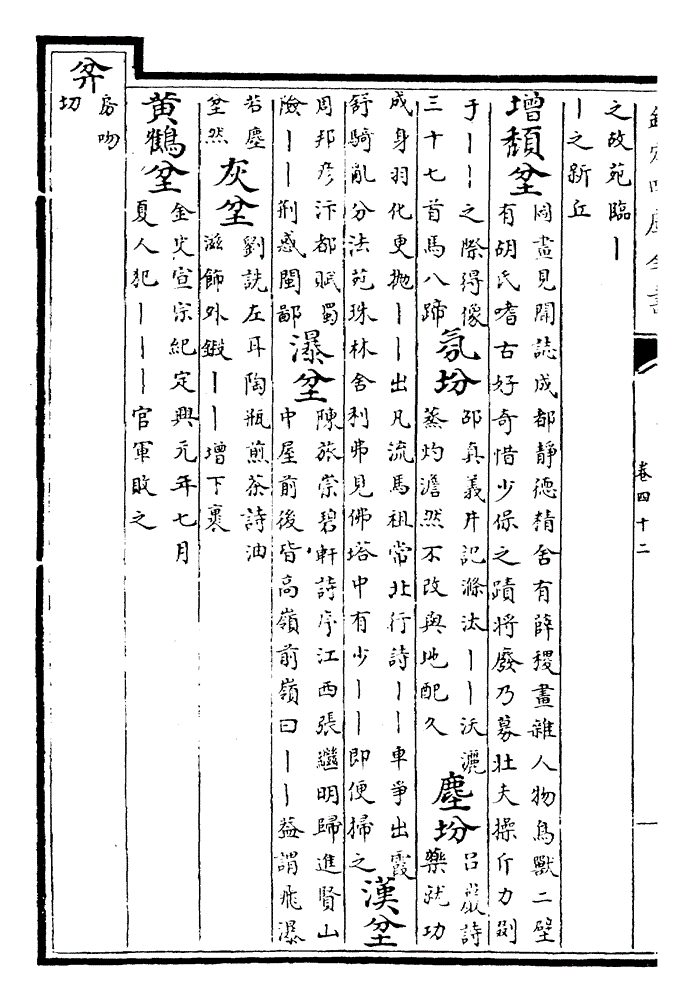 欽定四庫全書
卷四十二
之故苑臨丨
丨之新丘
增頽坌
圖畫見聞誌成都靜德精舍有薛稷畫雜人物鳥獸二壁
有胡氏嗜古好奇惜少保之蹟將廢乃募壯夫操斤力剟
于丨丨之際得像
三十七首馬八蹄
氛坋
邵真義井記滌汰丨丨沃灑
蒸灼澹然不改與地配久
塵坋
呂巖詩
藥就功
成身羽化更抛丨丨出凡流馬祖常北行詩丨丨車爭出霞
舒騎亂分法苑珠林舍利弗見佛塔中有少丨丨即便掃之
漢坌
周邦彥汴都賦蜀
險丨丨荆惑閩鄙
瀑坌
陳旅崇碧軒詩序江西張繼明歸進賢山
中屋前後皆高嶺前嶺曰丨丨葢謂飛瀑
若塵
坌然
灰坌
劉詵左耳陶瓶煎茶詩油
滋飾外鍛丨丨增下裹
黄鶴坌
金史宣宗紀定興元年七月
夏人犯丨丨丨官軍敗之
弅
房吻
切